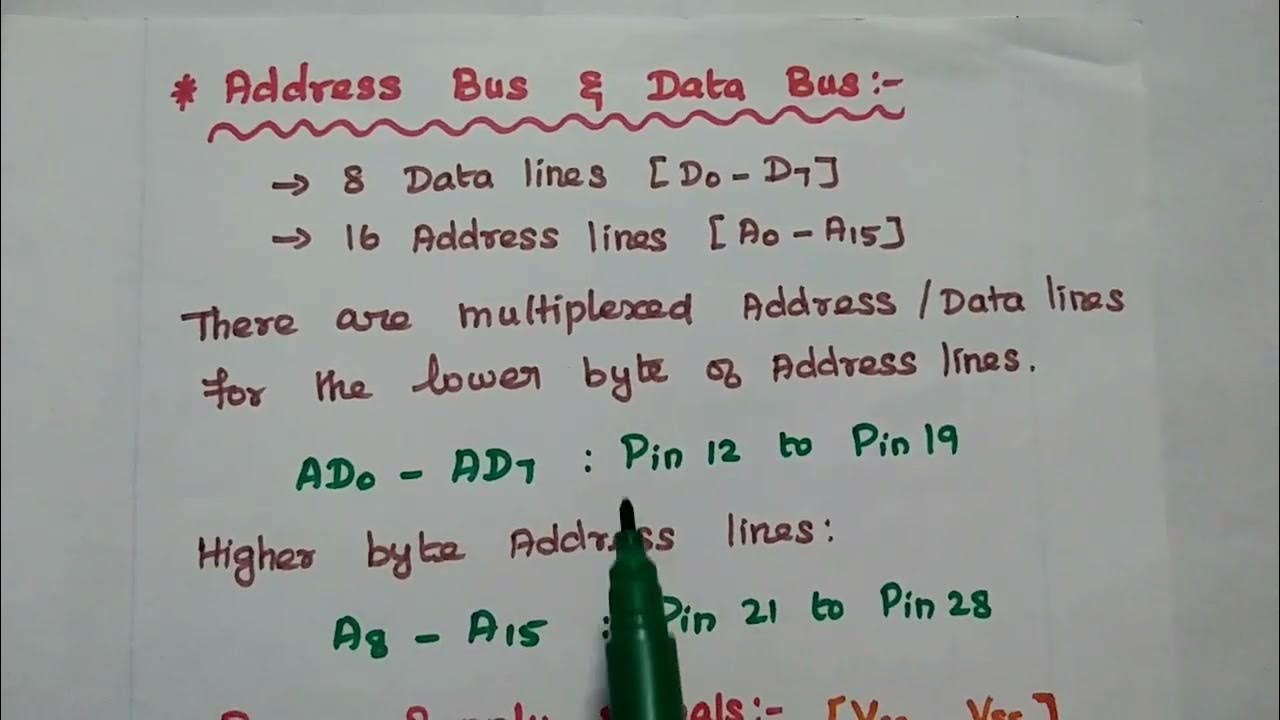 * Address Bus & Data Bus:-
→ 8 Data lines [D0 - D7]
→ 16 Address lines [A0 - A15]
There are multiplexed Address / Data lines
for the lower byte of Address lines.
AD0 - AD7 : Pin 12 to Pin 19
Higher byte Address lines:
A8 - A15 : Pin 21 to Pin 28